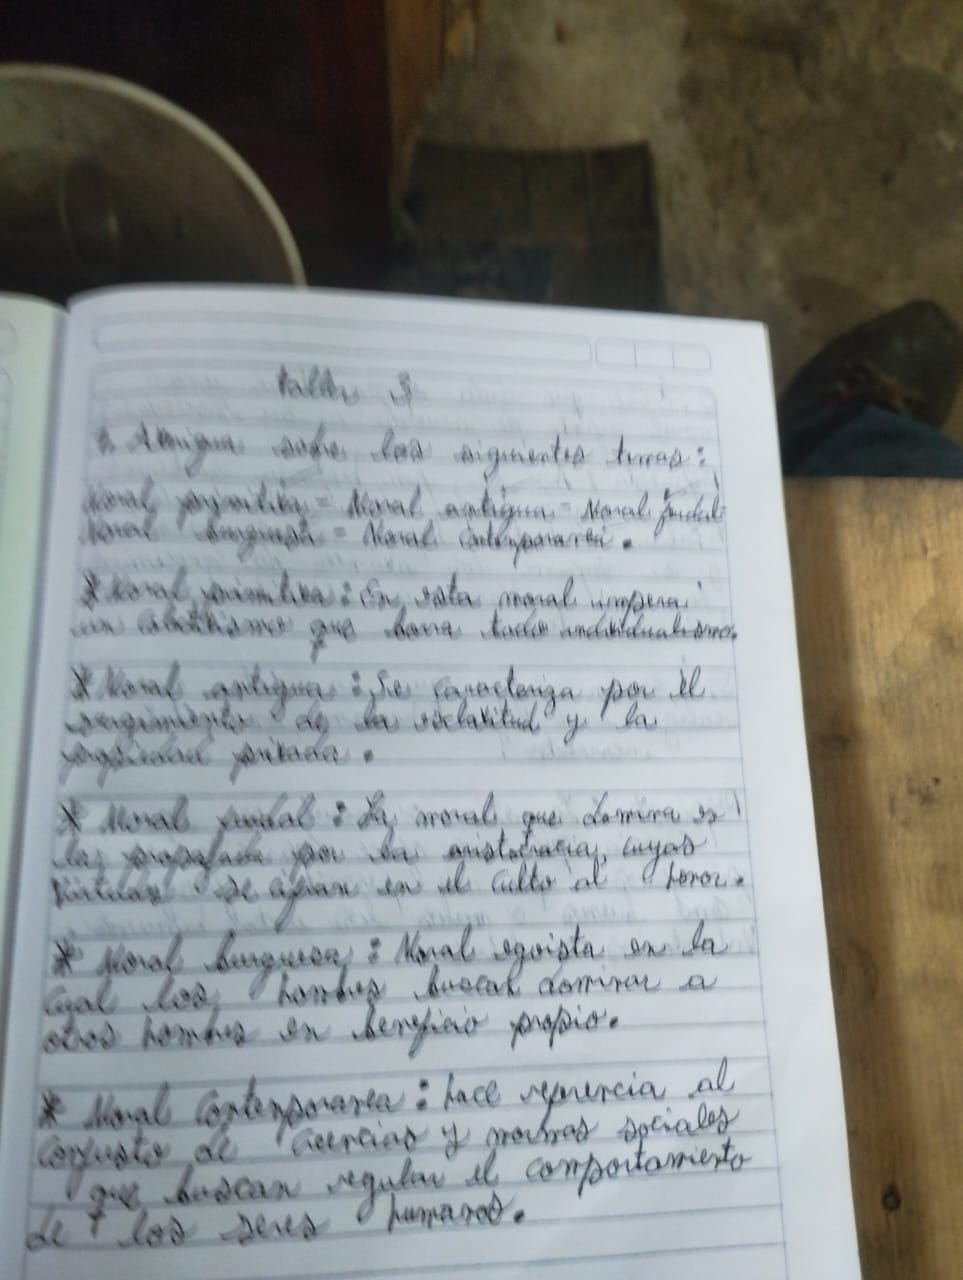 Taller 3
1. Averigua sobre los siguientes temas:
Moral primitiva = Moral antigua = Moral feudal
Moral burguesa = Moral contemporanea.
* Moral primitiva: En esta moral impera
un que borra todo individualismo.
* Moral antigua: Se caracteriza por el
surgimiento de la esclavitud y la
propiedad privada.
* Moral feudal: La moral que domina es
la propalada por la aristocracia, cuyas
virtudes se afian en el culto al honor.
* Moral burguesa: Moral egoista en la
cual los hombres buscan dominar a
otros hombres en beneficio propio.
* Moral Contemporanea: hace referencia al
conjunto de creencias y normas sociales
que buscan regular el comportamiento
de los seres humanos.